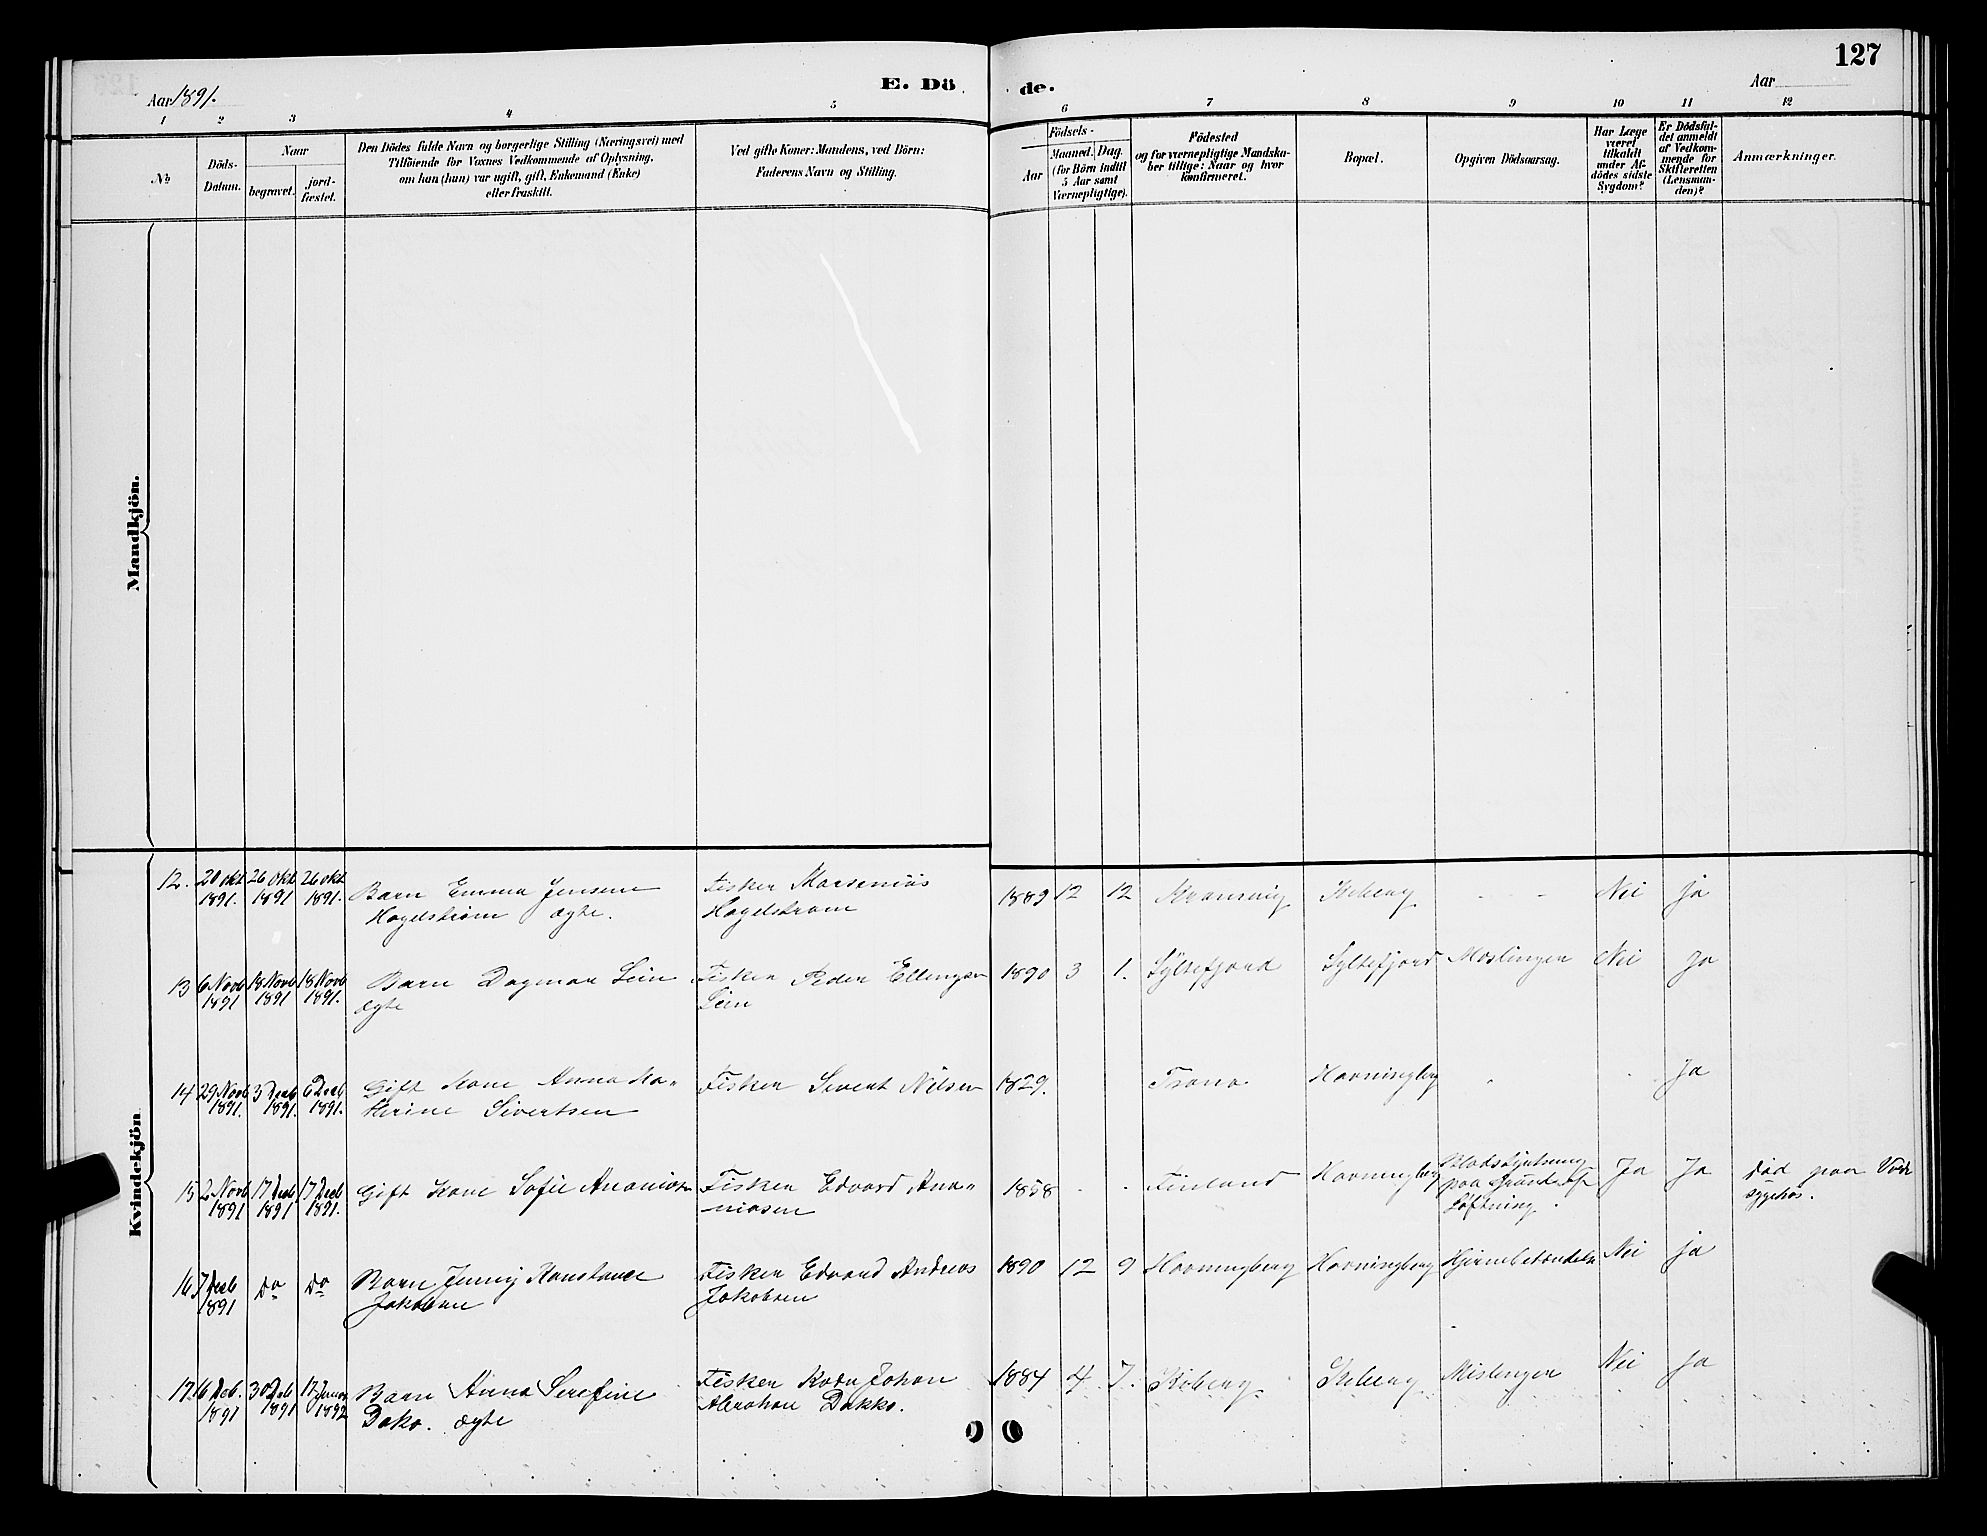 127
Aar 1891.
E. Dö
de.
Aar
1 2 3 4 5
6 7 8 9 10 11 12
№
Döds-
Datum.
Naar
begravet.
jord-
fæstet.
Den Dödes fulde Navn og borgerlige Stilling (Næringsvei) med
Tilföiende for Voxnes Vedkommende af Oplysning,
om han (hun) var ugift, gift, Enkemand (Enke)
eller fraskilt.
Ved gifte Koner: Mandens, ved Börn:
Faderens Navn og Stilling.
Födsels-
Aar
Maaned. Dag
(for Börn indtil
5 Aar samt
Værnepligtige).
Födested
og for værnepligtige Mandska-
ber tillige: Naar og hvor
konfirmeret.
Bopæl.
Opgiven Dödsaarsag.
Har Læge
været
tilkaldt
under Af-
dödes sidste
Sygdom?
Er Dödsfal-
det anmeldt
af Vedkom-
mende for
Skifteretten
(Lensman-
den)?
Anmærkninger.
Mandkjön.
Kvindekjön
12. 20 okt 1891. 26 okt 1891 26 okt 1891.
Barn Emma Jensine
Hagelstrøm ægte.
Fisker Marsenius
Hagelstrøm
1889 12 12 Kramvig Kiberg Nei ja
13 6 Novb 1891 18 Novb 1891 18 Novb 1891.
Barn Dagmar Lein
ægte
Fisker Peder Ellingsen
Lein
1890 3 1. Syltefjord Syltefjord Mæslinger Nei ja
14 29 Novb 1891. 3 Decb 1891. 6 Decb 1891.
Gift Kone Anna Ka-
therine Sivertsen
Fisker Sivert Nilsen
1829. Trana Havningberg Ja
15 2 Novb 1891 17 Decb 1891 17 Decb 1891.
Gift Kone Sofie Ananias
Fisker Edvard Ana-
niasen
1858 Finland Havningberg
paa Grund af
Løftning.
Ja Ja
død paa Vadsø
sygehus.
16 7 Decb 1891 Do Do
Barn Jenny Konstance
Jakobsen
Fisker Edvard Andreas
Jakobsen
1890 12 9 Havningberg Havningberg Hjernebetændelse Nei ja
17. 16 Deb. 1891 30 Deb 1891 17 Januar 1892
Barn Anna Serefine
Dako. ægte
Fisker Karn Johan
Abraham Dakko.
1884 4 7. Kiberg Kiberg Mislinger Nei Ja